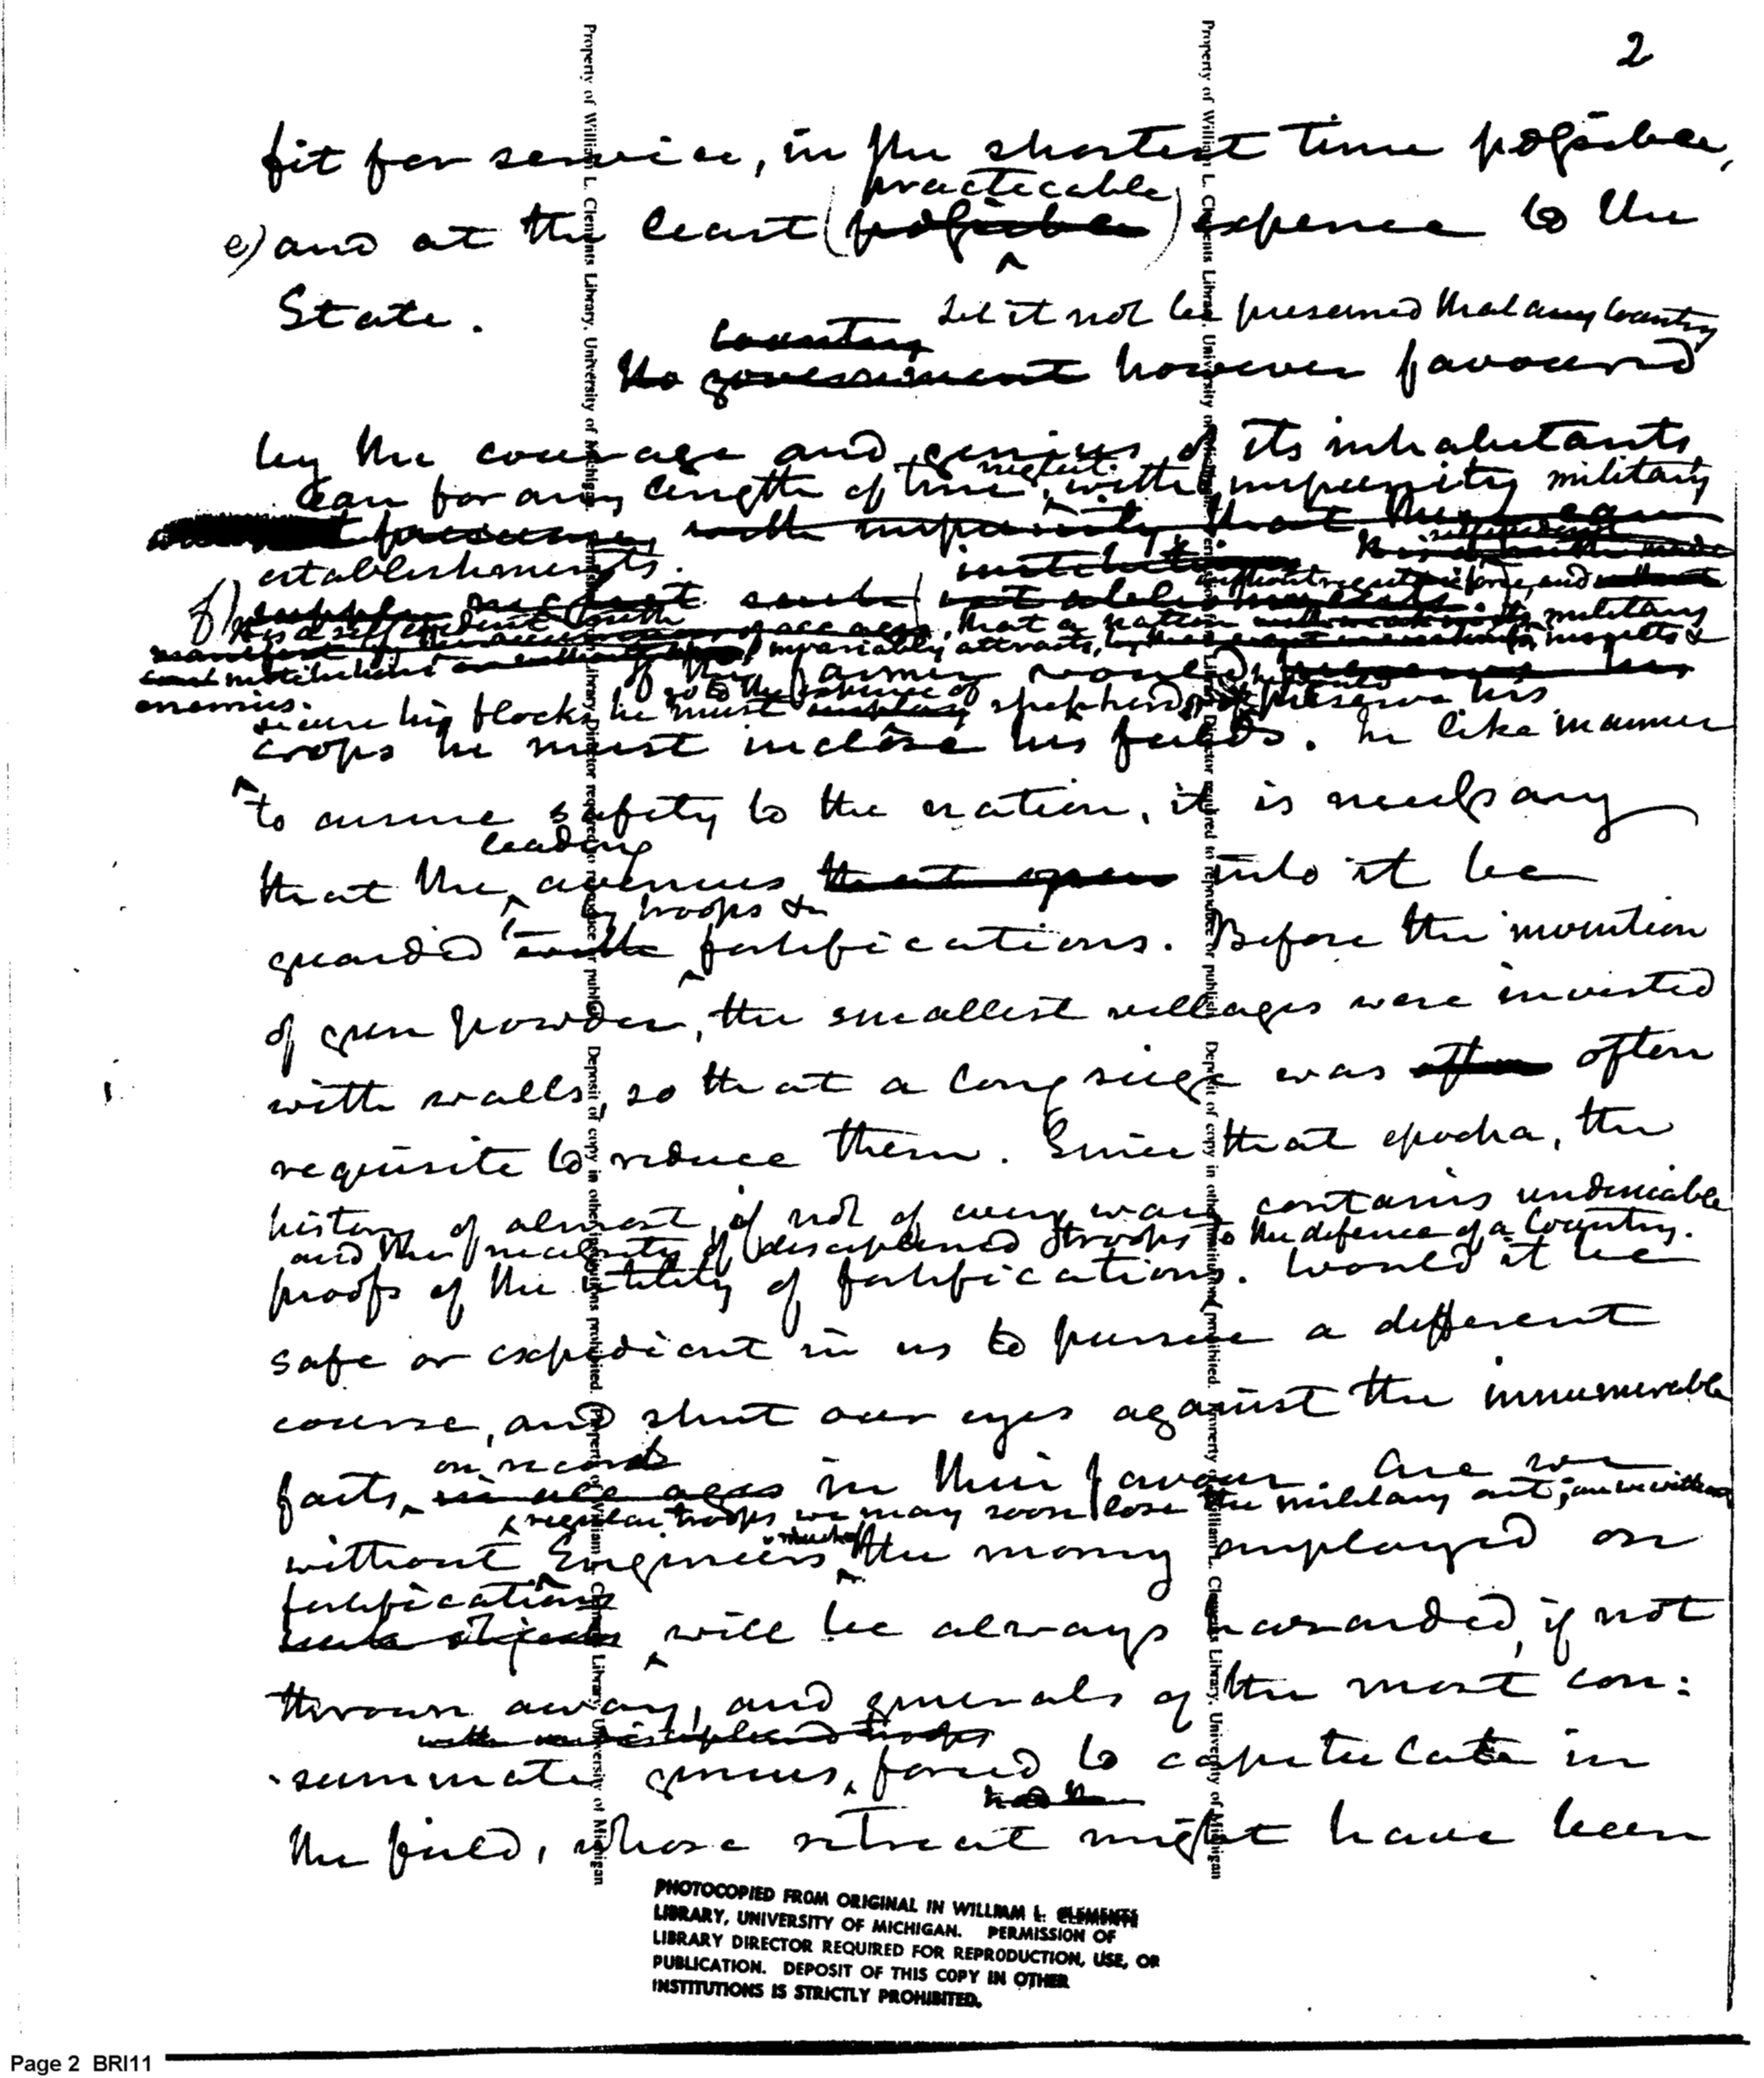 2
fit for service, in the shortest time possible,
practicable
e) and at the least (possible) expence to the
State.
Let it not be presumed that any Country
Country
No government however favoured
by the courage and genius of its inhabitants
can for any length of time neglect with impunity military
with impunity, that they can
establishments.
It is a self evident truth, that a nation
without regular force, and its military
institutions invariably attracts insults &
enemies.
If the farmer would preserve his
secure his flocks he must go to the expence of shepherds,
crops he must inclose his fields. In like manner
to ensure safety to the nation, it is necessary
leading
that the avenues that open into it be
by troops &
guarded with fortifications. Before the invention
of gun powder, the smallest villages were invested
with walls, so that a long siege was often often
requisite to reduce them. Since that epocha, the
history of almost, if not of every war contains undeniable
and the necessity of disciplined troops to the defence of a Country.
proofs of the utility of fortifications. Would it be
safe or expedient in us to pursue a different
course, and shut our eyes against the innumerable
on record
facts, in all ages in their favour. Are we
regular troops we may soon lose the military art; are we without
without Engineers much of the money employed on
fortifications
such objects will be always hazarded, if not
thrown away, and generals of the most con:
with undisciplined troops
-summate genius, forced to capitulate in
the field, whose retreat might have been
Property of William L. Clements Library, University of Michigan. Library Director required to reproduce or publish. Deposit of copy in other institutions prohibited. Property of William L. Clements Library, University of Michigan
Property of William L. Clements Library, University of Michigan. Library Director required to reproduce or publish. Deposit of copy in other institutions prohibited. Property of William L. Clements Library, University of Michigan
PHOTOCOPIED FROM ORIGINAL IN WILLIAM L. CLEMENTS
LIBRARY, UNIVERSITY OF MICHIGAN. PERMISSION OF
LIBRARY DIRECTOR REQUIRED FOR REPRODUCTION, USE, OR
PUBLICATION. DEPOSIT OF THIS COPY IN OTHER
INSTITUTIONS IS STRICTLY PROHIBITED.
Page 2 BRI11